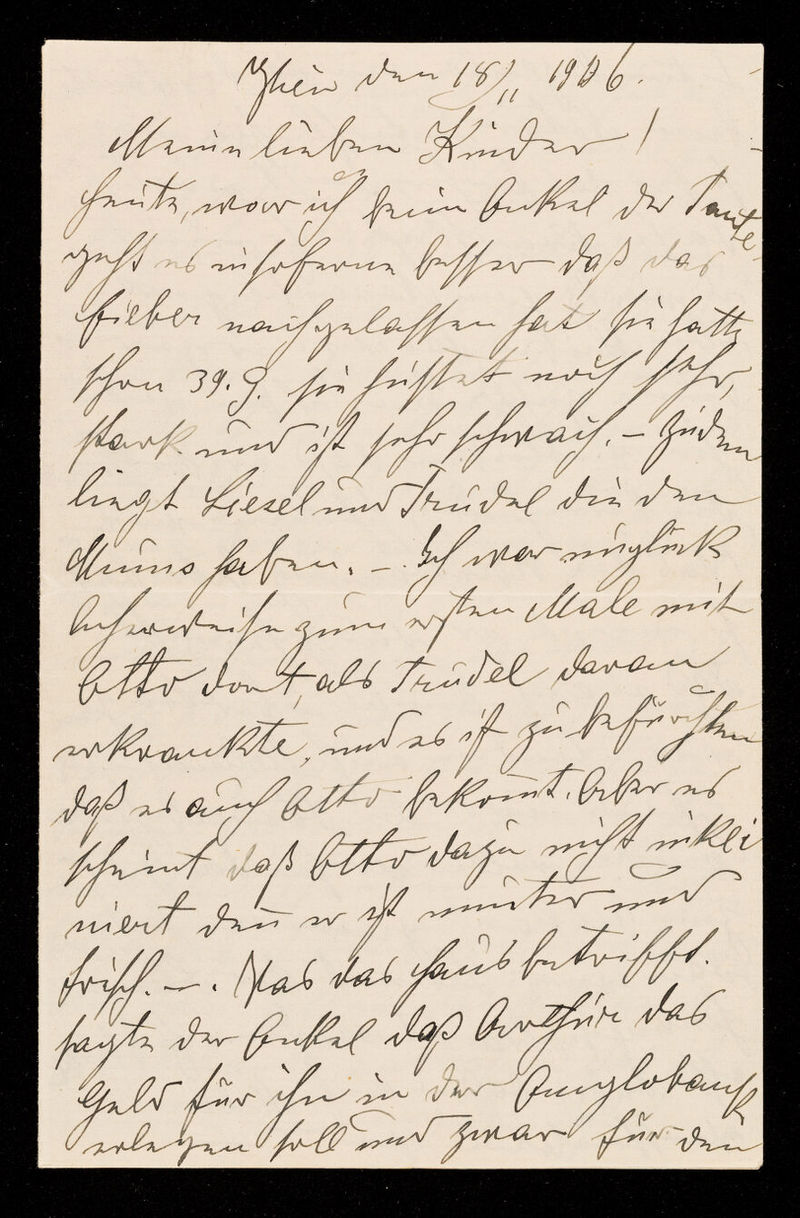 Wien den 18/II 1906.
Meine lieben Kinder!
Heute, war ich beim Onkel der Tante
geht es insoferne besser daß das
Fieber nachgelassen hat sie hatte
schon 39.9. sie hustet noch sehr,
stark und ist sehr schwach. – Zudem
liegt Liesel und Trudel die den
Mums haben. – Ich war unglück
licherweise zum ersten Male mit
Otto dort, als Trudel daran
erkrankte, und es ist zu befürchten
daß es auch Otto bekomt. Aber es
scheint daß Otto dazu nicht inkli
niert den er ist munter und
frisch. – . Was das Haus betrifft.
sagte der Onkel daß Arthur das
Geld für ihn in der Anglobank
erlegen soll und zwar für den